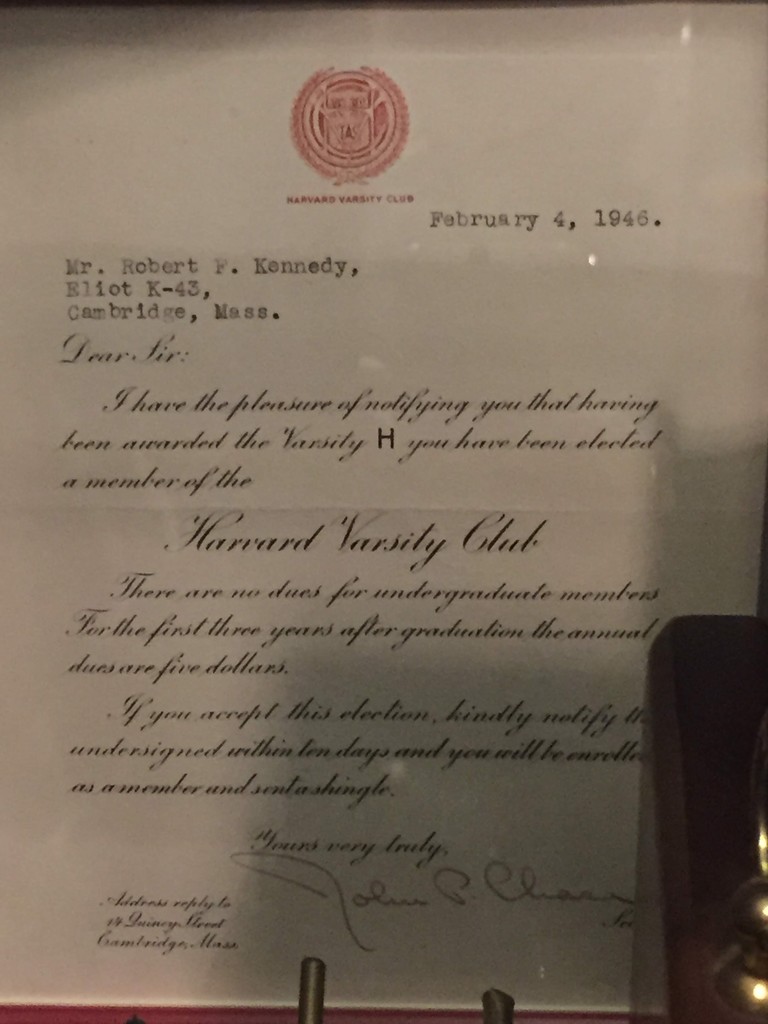 TAS
HARVARD VARSITY CLUB
February 4, 1946.
Mr. Robert F. Kennedy,
Eliot K-43,
Cambridge, Mass.
Dear Sir:
I have the pleasure of notifying you that having
been awarded the Varsity H you have been elected
a member of the
Harvard Varsity Club
There are no dues for undergraduate members
For the first three years after graduation the annual
dues are five dollars.
If you accept this election, kindly notify
undersigned within ten days and you will be
as a member and sent a shingle.
Yours very truly,
John P. Chase
Address reply to
14 Quincy Street
Cambridge, Mass.